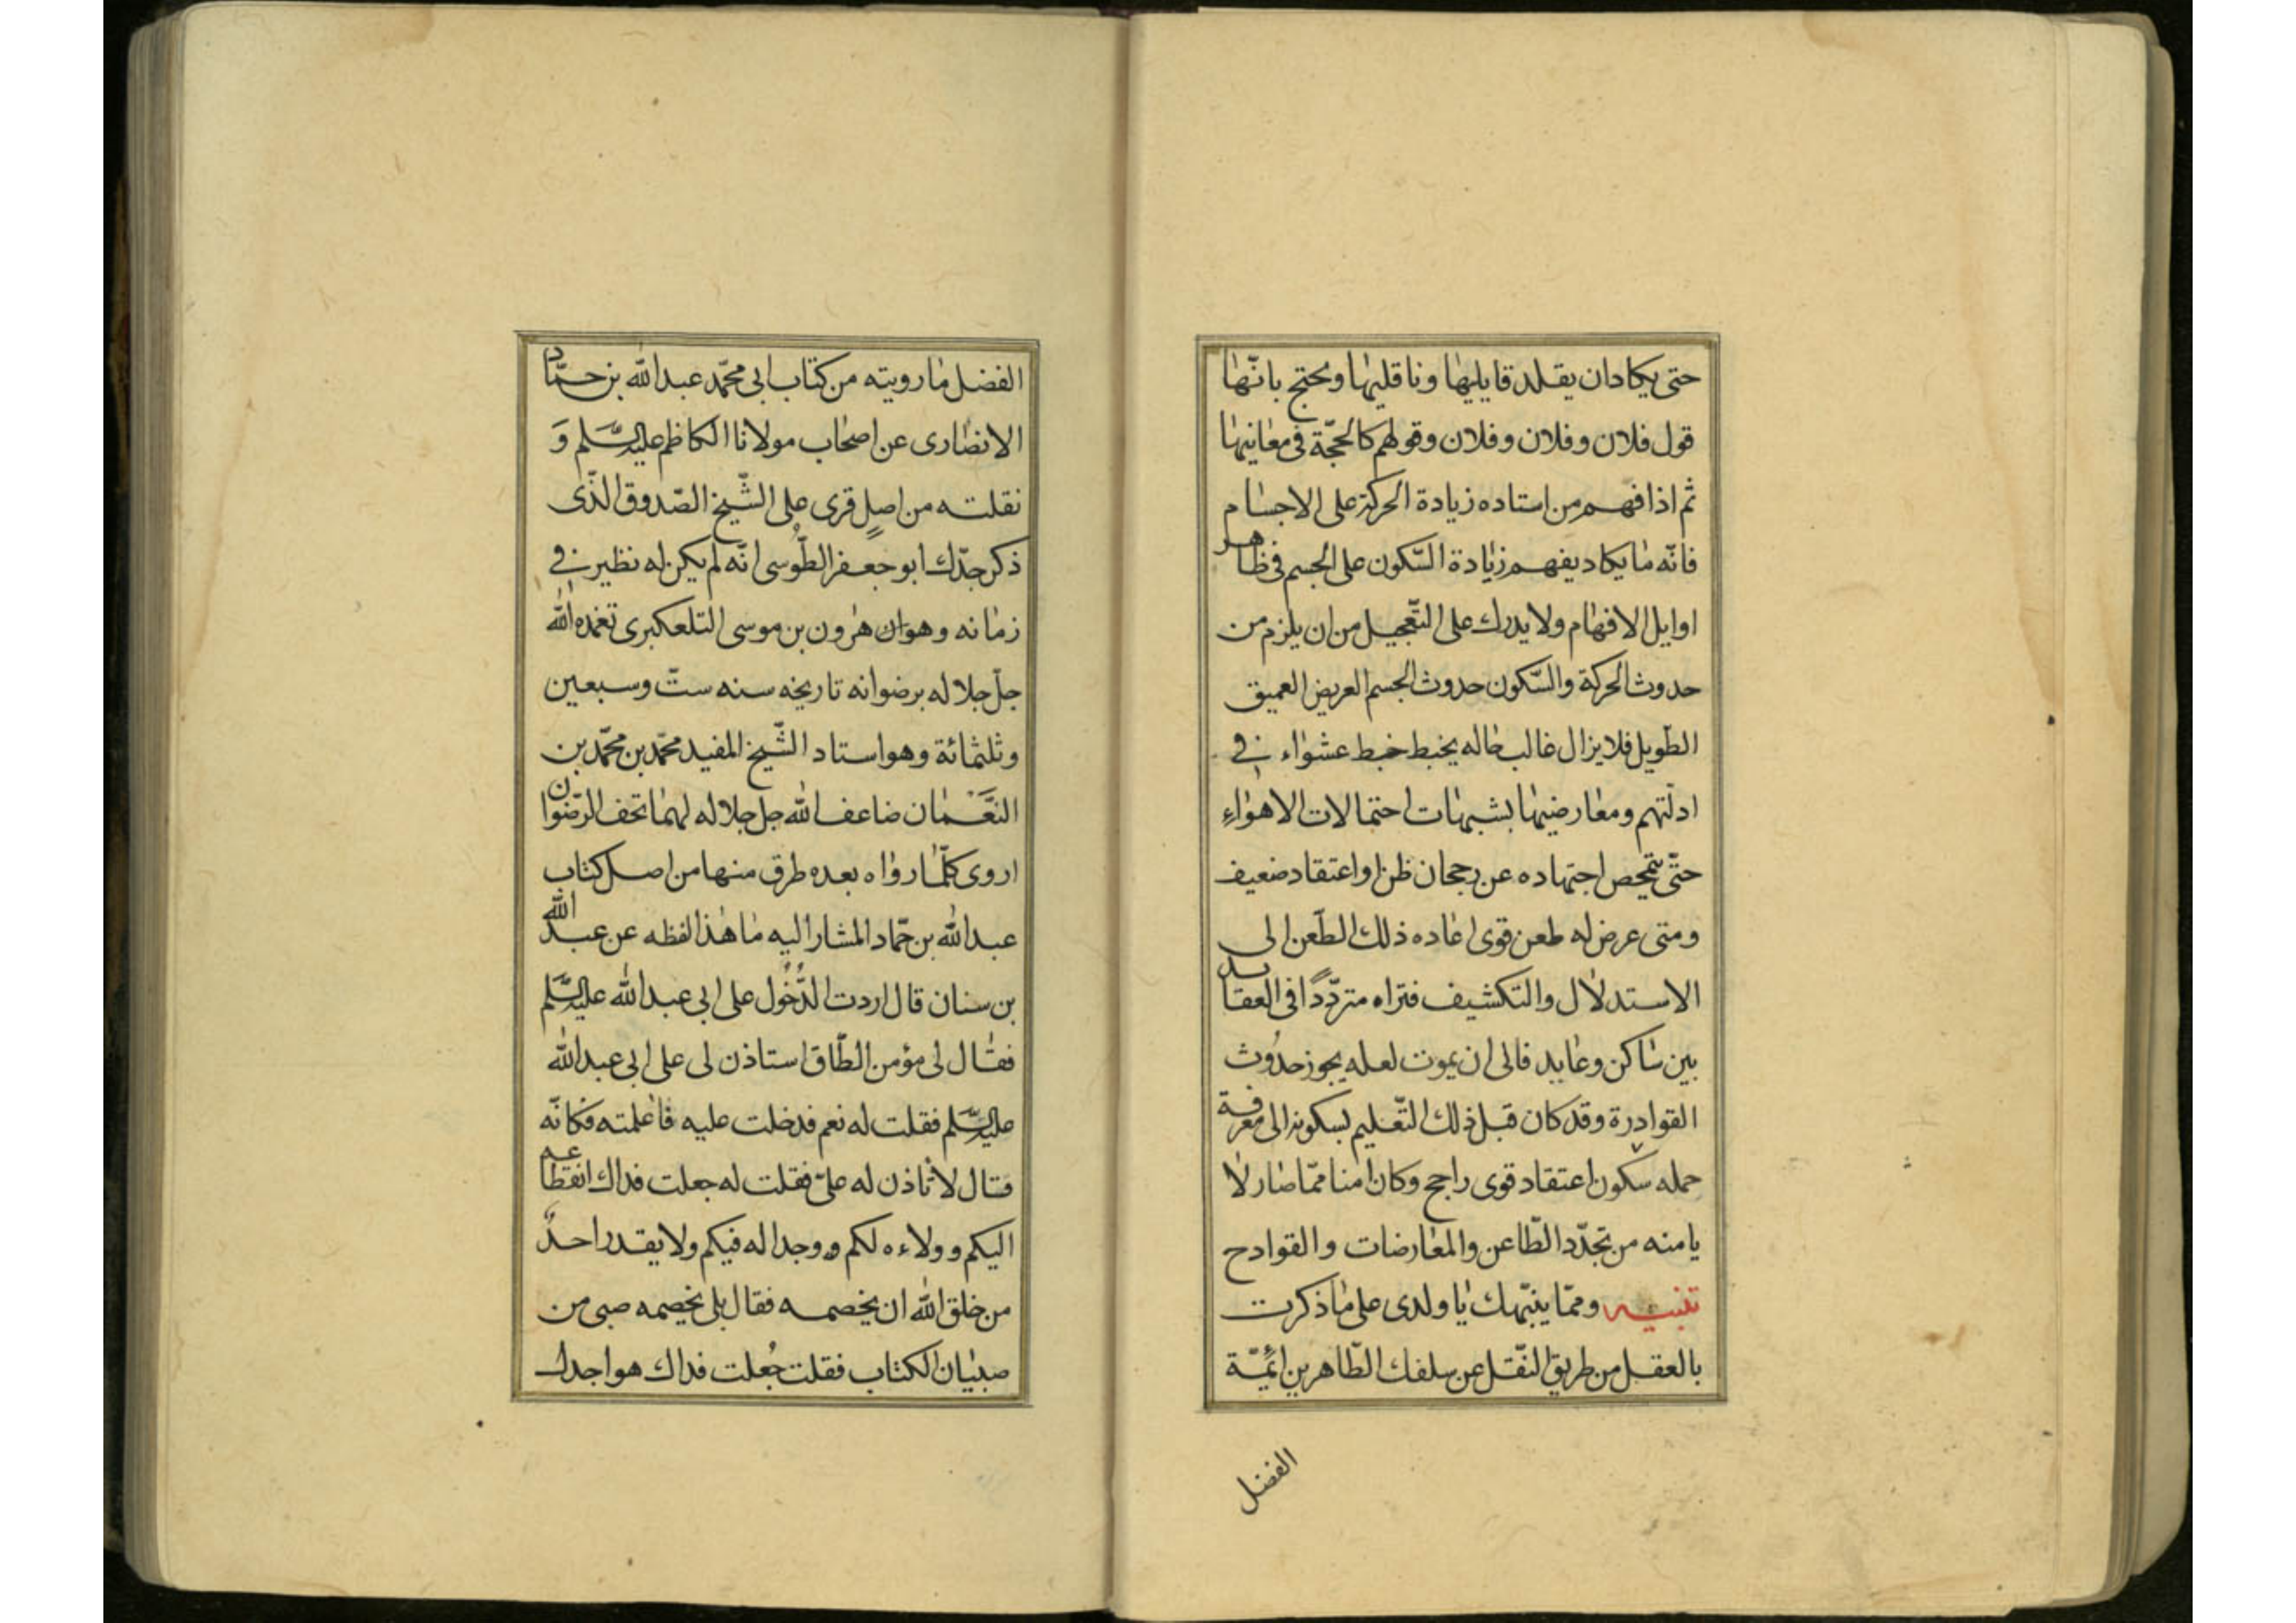 حتى يكادان يقلد قايليها وناقليها ويحتج بانّها
قول فلان وفلان وفلان وقولهم كالحجّة فى معانيها
ثم اذا فهم من استاده زيادة الحركة على الاجسام
فانّه ما يكاد يفهم زيادة السّكون على الجسم فى ظاهر
اوايل الافهام ولا يدرك على التّعجيل من ان يلزم من
حدوث الحركة والسّكون حدوث الجسم العريض العميق
الطّويل فلا يزال غالب حاله يخبط خبط عشواء فى
ادلّتهم ومعارضيها بشبهات احتمالات الاهواء
حتّى يتمحص اجتهاده عن رجحان ظن او اعتقاد ضعيف
ومتى عرض له طعن قوى اعاده ذلك الطّعن الى
الاستدلال والتكشيف فتراه متردّدًا فى العقايد
بين ساكن وعايد فالى ان يموت لعله يجوز حدُوث
القوادرة وقد كان قبل ذلك التّعليم بسكونه الى معرفة
حمله سكون اعتقاد قوى راجح وكان امنا ممّا صار لا
يامنه من تجدّد الطّاعن والمعارضات والقوادح
تنبيه وممّا ينبّهك يا ولدى على ما ذكرت
بالعقل من طريق النّقل عن سلفك الطّاهرين ائمّة
الفضل
الفضل ما رويته من كتاب ابى محمّد عبد الله بن حمّاد
الانصارى عن اصحاب مولانا الكاظم عليه السّلم وَ
نقلته من اصلٍ قرى على الشّيخ الصّدوق الذّى
ذكر جدّك ابو جعفر الطّوسى انّه لم يكن له نظير فى
زمانه وهو ان هرون بن موسى التلعكبرى تغمده الله
جلّ جلاله برضوانه تاريخه سنه ستّ وسبعين
وثلثمائة وهو استاد الشّيخ المفيد محمّد بن محمّد بن
النّعَمان ضاعف الله جل جلاله لهما تحف الرّضوان
اروى كلّما رواه بعده طرق منها من اصل كتاب
عبد الله بن حمّاد المشار اليه ما هذا لفظه عن عبد الله
بن سنان قال اردت الدُّخُول على ابى عبد الله عليه السّلم
فقال لى مؤمن الطّاق استاذن لى على ابى عبد الله
عليه السّلم فقلت له نعم فدخلت عليه فاعلمته فكانّه
فقال لا تاذن له علىّ فقلت له جعلت فداك انقطاعه
اليكم وولاءه لكم ووجداله فيكم ولا يقدر احدٌ
من خلق الله ان يخصمه فقال بلى يخصمه صبى من
صبيان الكتاب فقلت جُعلت فداك هو اجدل